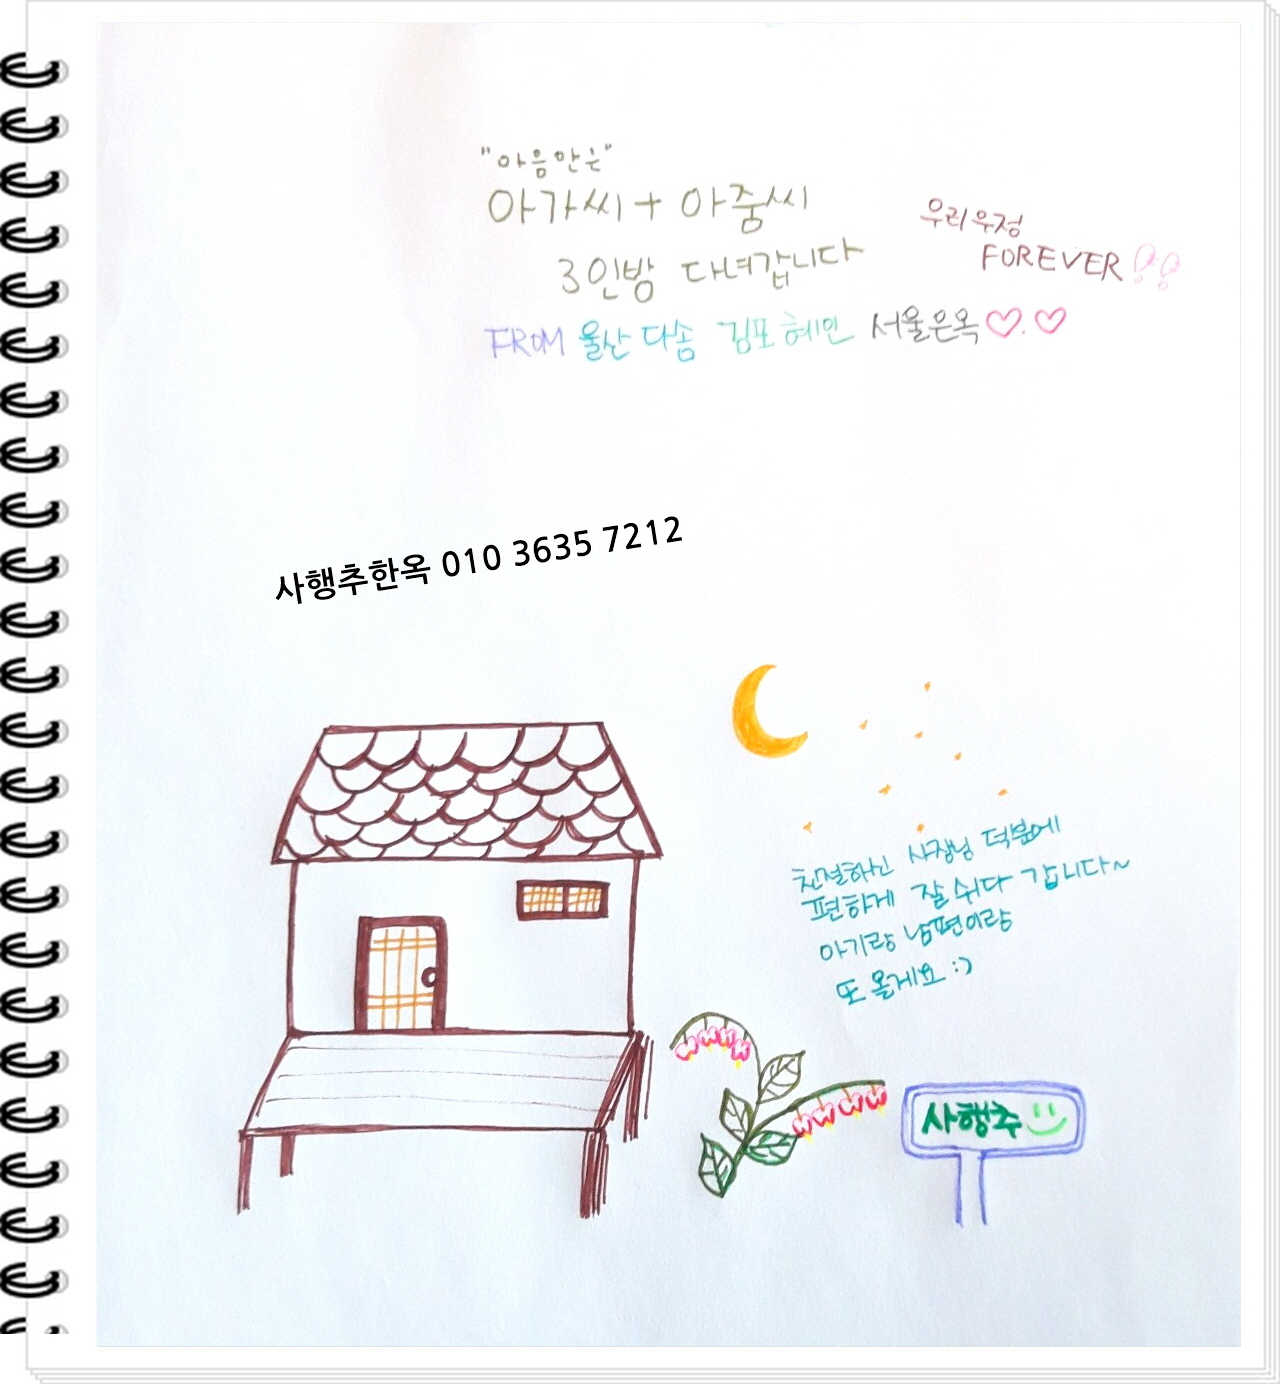 "마음만은"
아가씨 + 아줌씨
3인방 다녀갑니다
우리우정
FOREVER !!
FROM 울산다솜 김포혜민 서울은옥♡.♡
사행추한옥 010 3635 7212
친절하신 사장님 덕분에
편하게 잘 쉬다 갑니다~
아기랑 남편이랑
또 올게요 :)
사행추